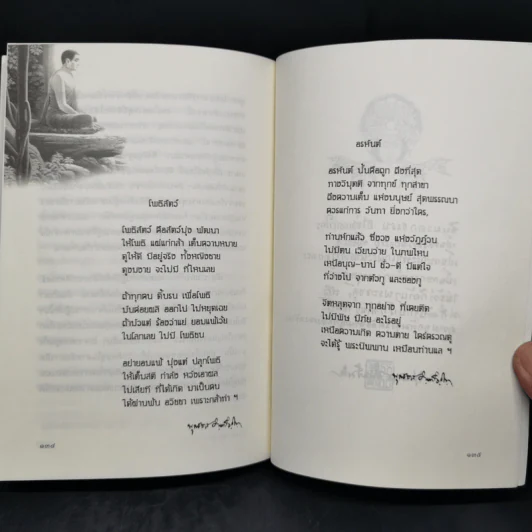 โพธิสัตว์
โพธิสัตว์ คือสัตว์มุ่ง พัฒนา
ให้โพธิ แผ่แก่กล้า เต็มความหมาย
ดูให้ดี มีอยู่จริง ทั้งหญิงชาย
ดูจนตาย จะไม่มี ที่ไหนเลย
ถ้าทุกคน ดิ้นรน เพื่อโพธิ
บ่มค่อยผลิ ออกไป ไม่หยุดเฉย
ถ้าปวดแต่ ร้องว่าแย่ ยอมแพ้เว้ย
ในโลกเลย ไม่มี โพธิชน
อย่ายอมแพ้ มุ่งแต่ ปลูกโพธิ
ให้เต็มสติ กำลัง หวังเอาผล
ไม่เสียที ที่ได้เกิด มาเป็นคน
ได้ผ่านพ้น อวิชชา เพราะกล้าทำ ฯ
๑๓๔
อรหันต์
อรหันต์ นั้นคือถูก ถึงที่สุด
ทางวิมุตติ จากทุกข์ ทุกสาขา
ถึงความเต็ม แห่งมนุษย์ สุดพรรณนา
ควรแก่การ วันทา ยิ่งกว่าใคร,
ท่านหักแล้ว ซี่วง แห่งวัฏฏ์วน
ไม่มีตน เวียนว่าย ในภพไหน
เหนือบุญ-บาป ชั่ว-ดี มีแต่ใจ
ที่ว่างไป จากตัวกู และของกู
จิตหลุดจาก ทุกอย่าง ที่เคยติด
ไม่มีพิษ มีภัย อะไรอยู่
เหนือความเกิด ความตาย ใคร่ครวญดู
จะได้รู้ พระนิพพาน เหมือนท่านแล ฯ
๑๓๕